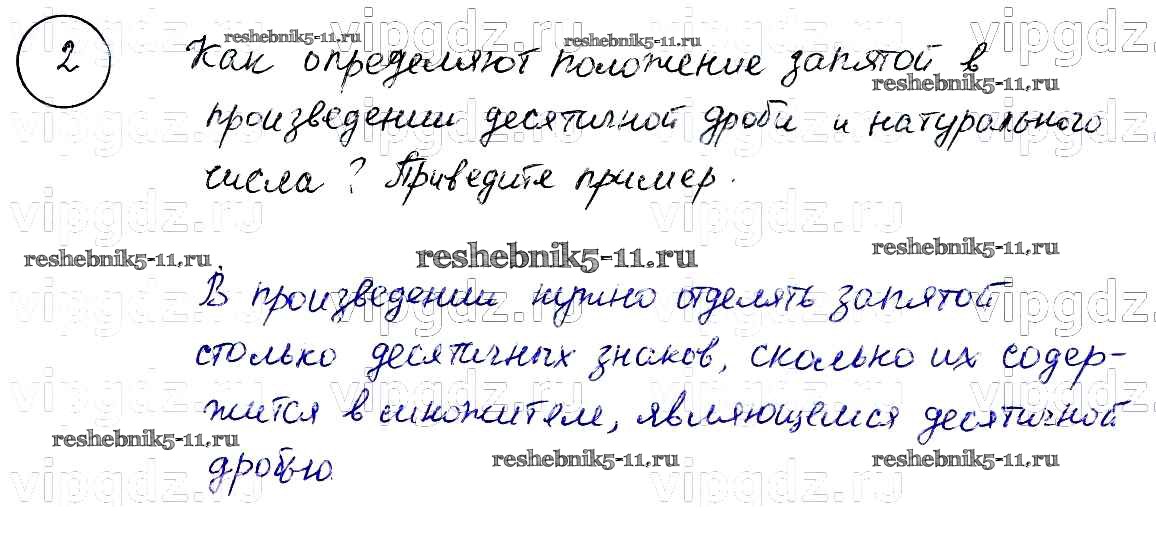 2 Как определяют положение запятой в
произведении десятичной дроби и натурального
числа? Приведите пример.
В произведении нужно отделять запятой
столько десятичных знаков, сколько их содер-
жится в множителе, являющемся десятичной
дробью.
reshebnik5-11.ru
reshebnik5-11.ru
reshebnik5-11.ru
reshebnik5-11.ru
reshebnik5-11.ru
reshebnik5-11.ru
reshebnik5-11.ru
reshebnik5-11.ru
reshebnik5-11.ru
vipgdz.ru